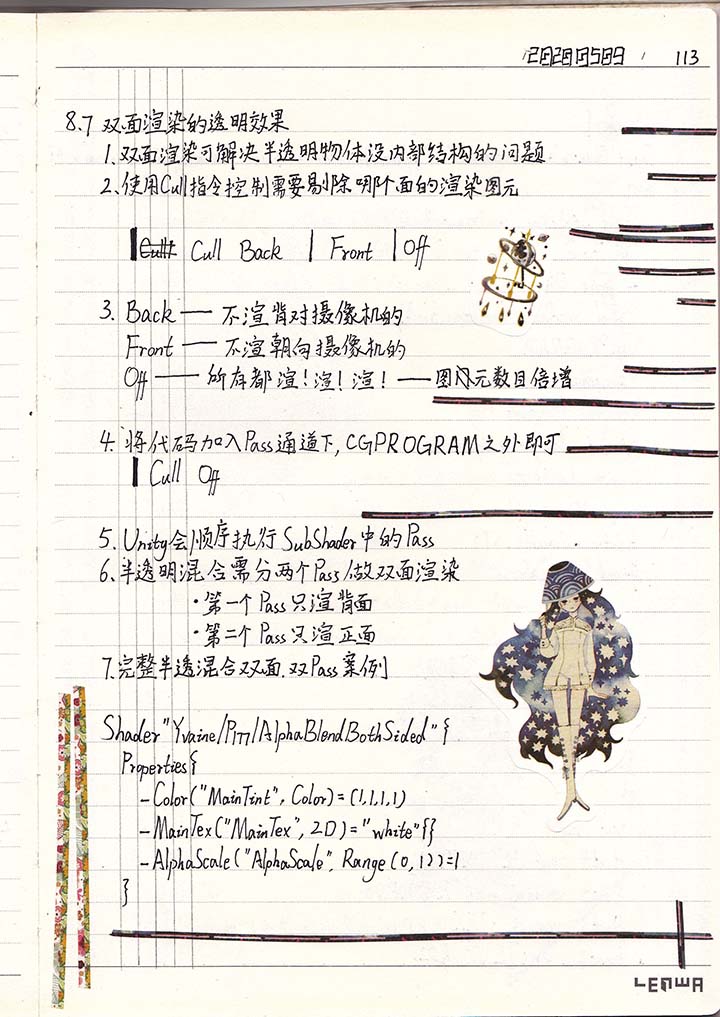 20200509 113
8.7 双面渲染的透明效果
1.双面渲染可解决半透明物体没内部结构的问题
2.使用Cull指令控制需要剔除哪个面的渲染图元
Cull Cull Back | Front | Off
3. Back — 不渲背对摄像机的
Front — 不渲朝向摄像机的
Off — 所有都渲!渲!渲! — 图元数目倍增
4. 将代码加入Pass通道下, CGPROGRAM之外即可
Cull Off
5. Unity会顺序执行SubShader中的Pass
6. 半透明混合需分两个Pass做双面渲染
·第一个Pass只渲背面
·第二个Pass只渲正面
7.完整半透混合双面.双Pass案例
Shader"Yvaine/P177/AlphaBlendBothSided"{
Properties{
-Color("MainTint", Color)=(1,1,1,1)
-MainTex("MainTex", 2D)="white"{}
-AlphaScale("AlphaScale", Range(0,1))=1
}
LENWA